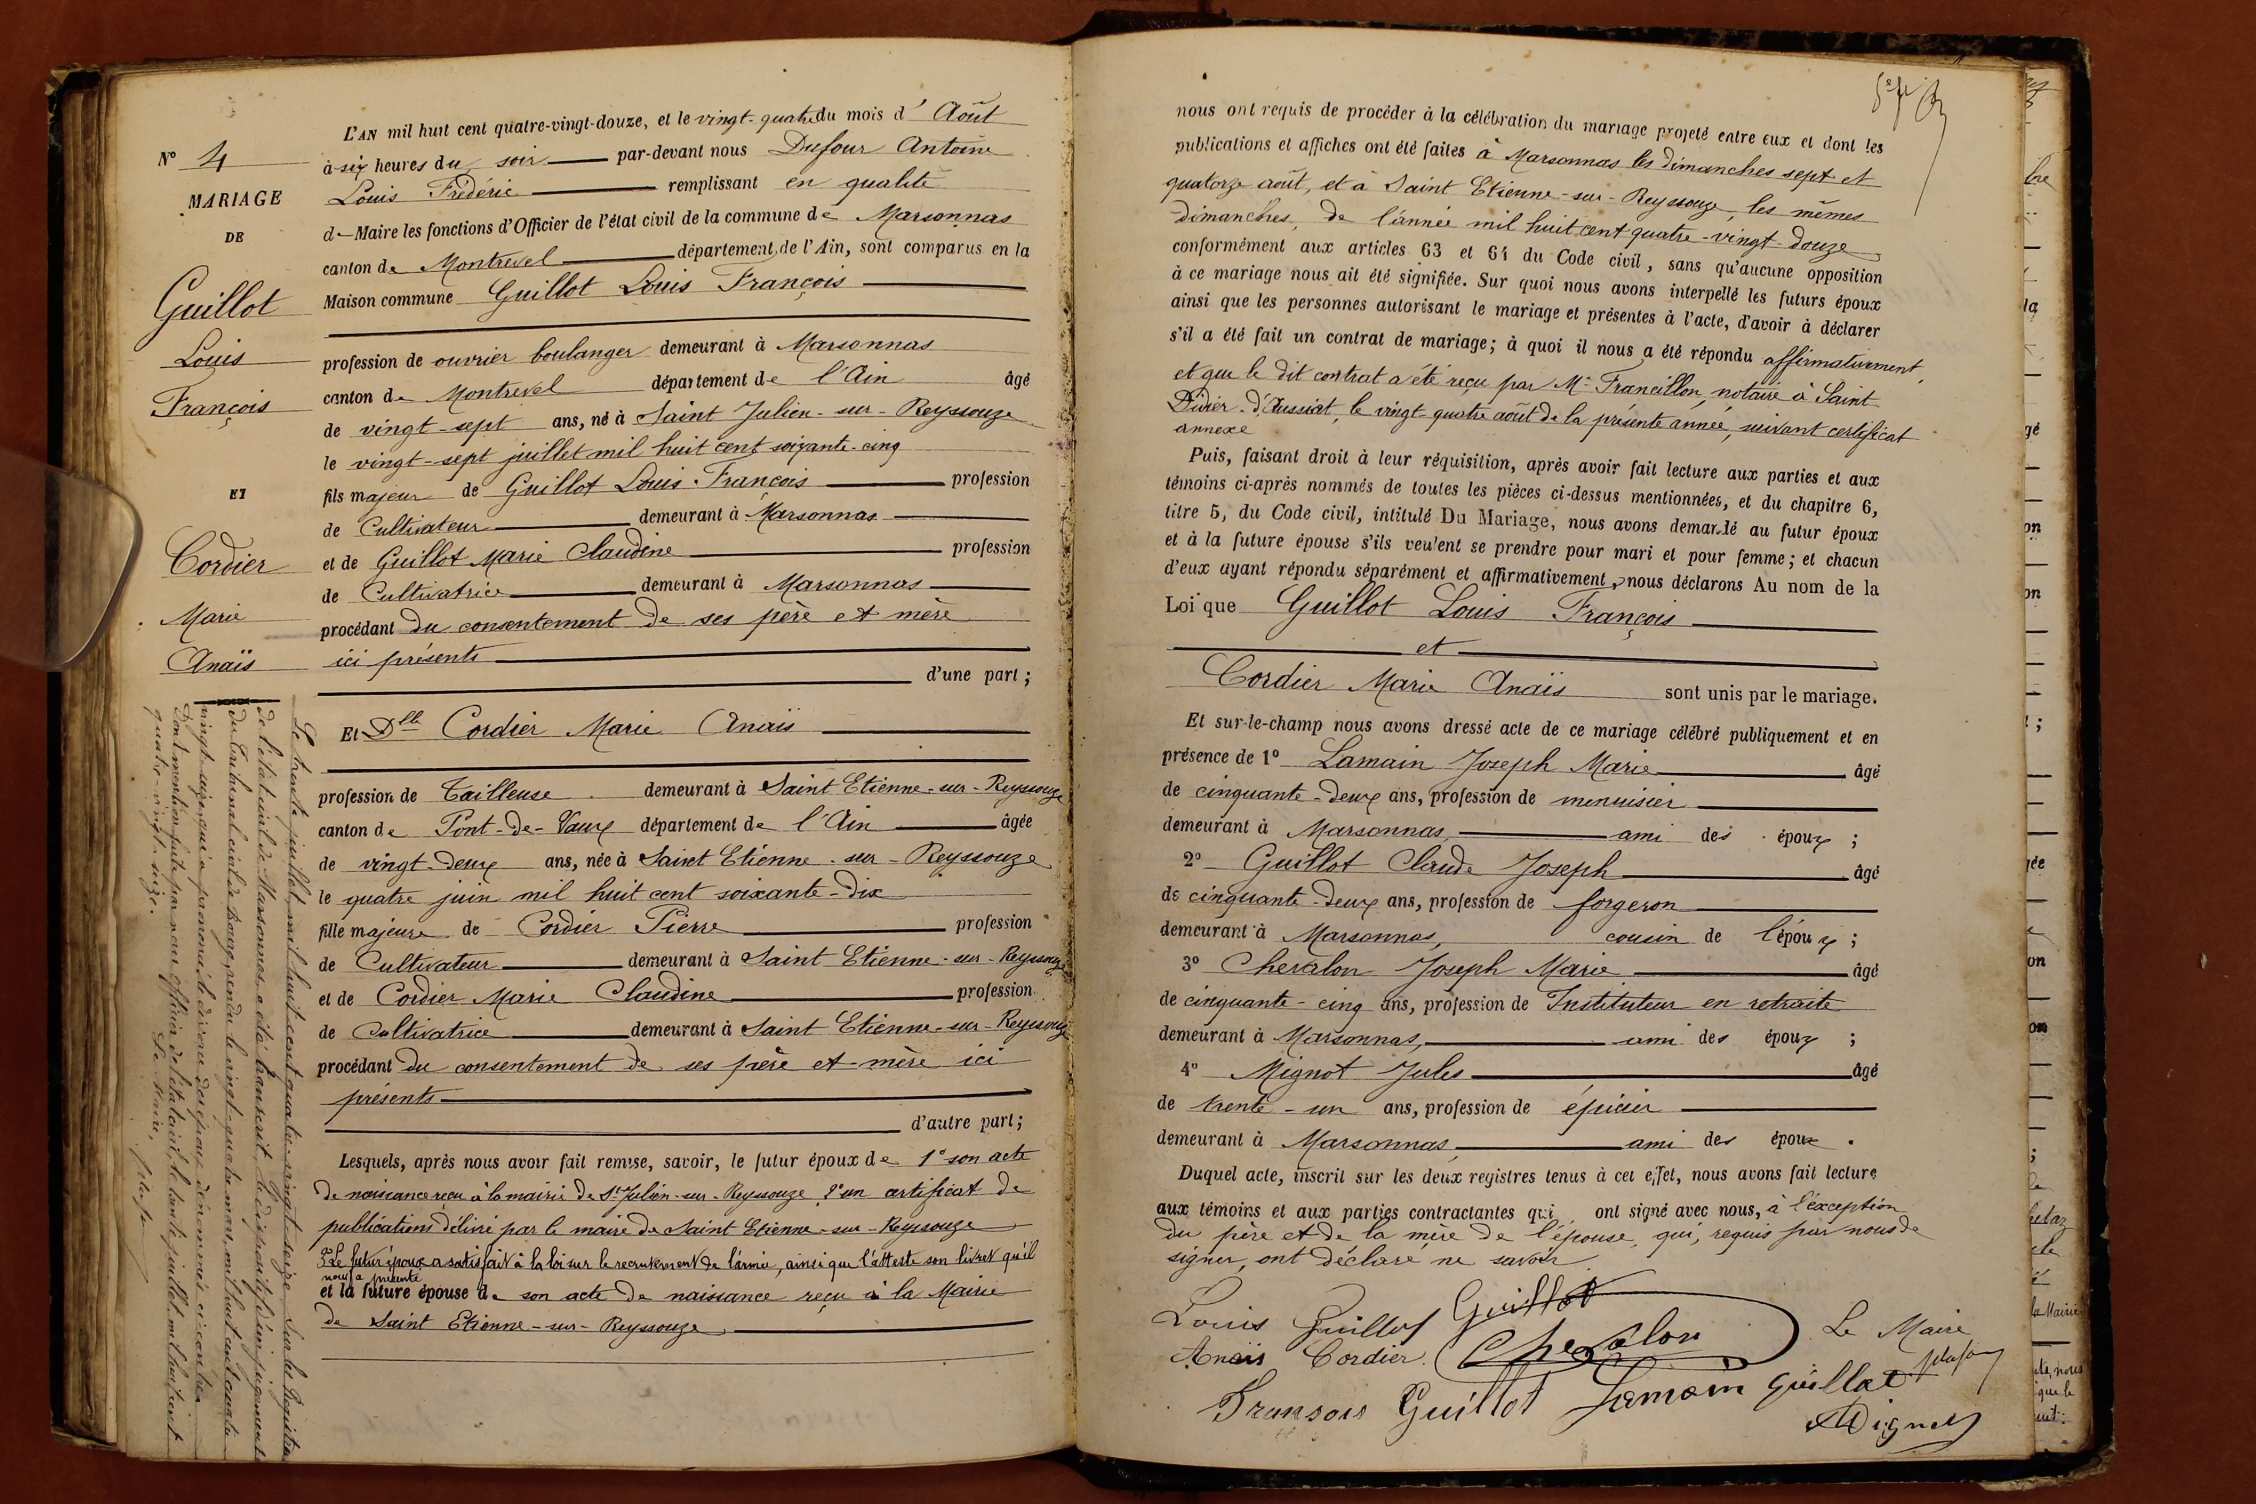 L'AN mil huit cent quatre-vingt-douze, et le vingt-quatre du mois d' Août
à six heures du soir par-devant nous Dufour Antoine
Louis Frédéric remplissant en qualité
de Maire les fonctions d'Officier de l'état civil de la commune de Marsonnas
canton de Montrevel département de l'Ain, sont comparus en la
Maison commune Guillot Louis François
profession de ouvrier boulanger demeurant à Marsonnas
canton de Montrevel département de l'Ain âgé
de vingt-sept ans, né à Saint Julien-sur-Reyssouze
le vingt-sept juillet mil huit cent soixante-cinq
fils majeur de Guillot Louis François profession
de Cultivateur demeurant à Marsonnas
et de Guillot Marie Claudine profession
de Cultivatrice demeurant à Marsonnas
procédant du consentement de ses père et mère
ici présents
d'une part;
Et Dlle Cordier Marie Anaïs
profession de Tailleuse demeurant à Saint Etienne-sur-Reyssouze
canton de Pont-de-Vaux département de l'Ain âgée
de vingt-deux ans, née à Saint Etienne-sur-Reyssouze
le quatre juin mil huit cent soixante-dix
fille majeure de Cordier Pierre profession
de Cultivateur demeurant à Saint Etienne-sur-Reyssouze
et de Cordier Marie Claudine profession
de Cultivatrice demeurant à Saint Etienne-sur-Reyssouze
procédant du consentement de ses père et mère ici
présents
d'autre part;
Lesquels, après nous avoir fait remise, savoir, le futur époux de 1° son acte
de naissance reçu à la mairie de St Julien-sur-Reyssouze 2° un certificat de
publications délivré par le maire de Saint Etienne-sur-Reyssouze
3° Le futur époux a satisfait à la loi sur le recrutement de l'armée, ainsi que l'atteste son livret qu'il
nous a présenté
et la future épouse de son acte de naissance reçu à la Mairie
de Saint Etienne-sur-Reyssouze
N° 4
MARIAGE
DE
Guillot
Louis
François
ET
Cordier
Marie
Anaïs
Le trente juillet mil huit cent quatre-vingt-seize sur les Registres
de l'état civil de Marsonnas a été transcrit le dispositif d'un jugement
du tribunal civil de Bourg, rendu le vingt-quatre mars mil huit cent quatre
vingt-seize qui a prononcé le divorce des époux dénommés ci-contre
Dont mention faite par nous officier de l'état civil, le trente juillet mil huit cent
quatre-vingt-seize.
Le Maire,
nous ont requis de procéder à la célébration du mariage projeté entre eux et dont les
publications et affiches ont été faites à Marsonnas les dimanches sept et
quatorze août, et à Saint Etienne-sur-Reyssouze, les mêmes
dimanches, de l'année mil huit cent quatre-vingt-douze
conformément aux articles 63 et 64 du Code civil, sans qu'aucune opposition
à ce mariage nous ait été signifiée. Sur quoi nous avons interpellé les futurs époux
ainsi que les personnes autorisant le mariage et présentes à l'acte, d'avoir à déclarer
s'il a été fait un contrat de mariage; à quoi il nous a été répondu affirmativement,
et que le dit contrat a été reçu par Me Francillon, notaire à Saint
Didier-d'Aussiat, le vingt-quatre août de la présente année, suivant certificat
annexé
Puis, faisant droit à leur réquisition, après avoir fait lecture aux parties et aux
témoins ci-après nommés de toutes les pièces ci-dessus mentionnées, et du chapitre 6,
titre 5, du Code civil, intitulé Du Mariage, nous avons demandé au futur époux
et à la future épouse s'ils veulent se prendre pour mari et pour femme; et chacun
d'eux ayant répondu séparément et affirmativement, nous déclarons Au nom de la
Loi que Guillot Louis François
et
Cordier Marie Anaïs sont unis par le mariage.
Et sur-le-champ nous avons dressé acte de ce mariage célébré publiquement et en
présence de 1° Lamain Joseph Marie âgé
de cinquante-deux ans, profession de menuisier
demeurant à Marsonnas, ami des époux;
2° Guillot Claude Joseph âgé
de cinquante-deux ans, profession de forgeron
demeurant à Marsonnas, cousin de l'époux;
3° Chevalon Joseph Marie âgé
de cinquante-cinq ans, profession de Instituteur en retraite
demeurant à Marsonnas, ami des époux;
4° Mignot Jules âgé
de trente-un ans, profession de épicier
demeurant à Marsonnas, ami des époux.
Duquel acte, inscrit sur les deux registres tenus à cet effet, nous avons fait lecture
aux témoins et aux parties contractantes qui ont signé avec nous, à l'exception
du père et de la mère de l'épouse, qui, requis par nous de
signer, ont déclaré ne savoir
Louis Guillot Guillot
Anaïs Cordier. Chevalon Le Maire
Fransois Guillot Lamain Guillot
Mignot